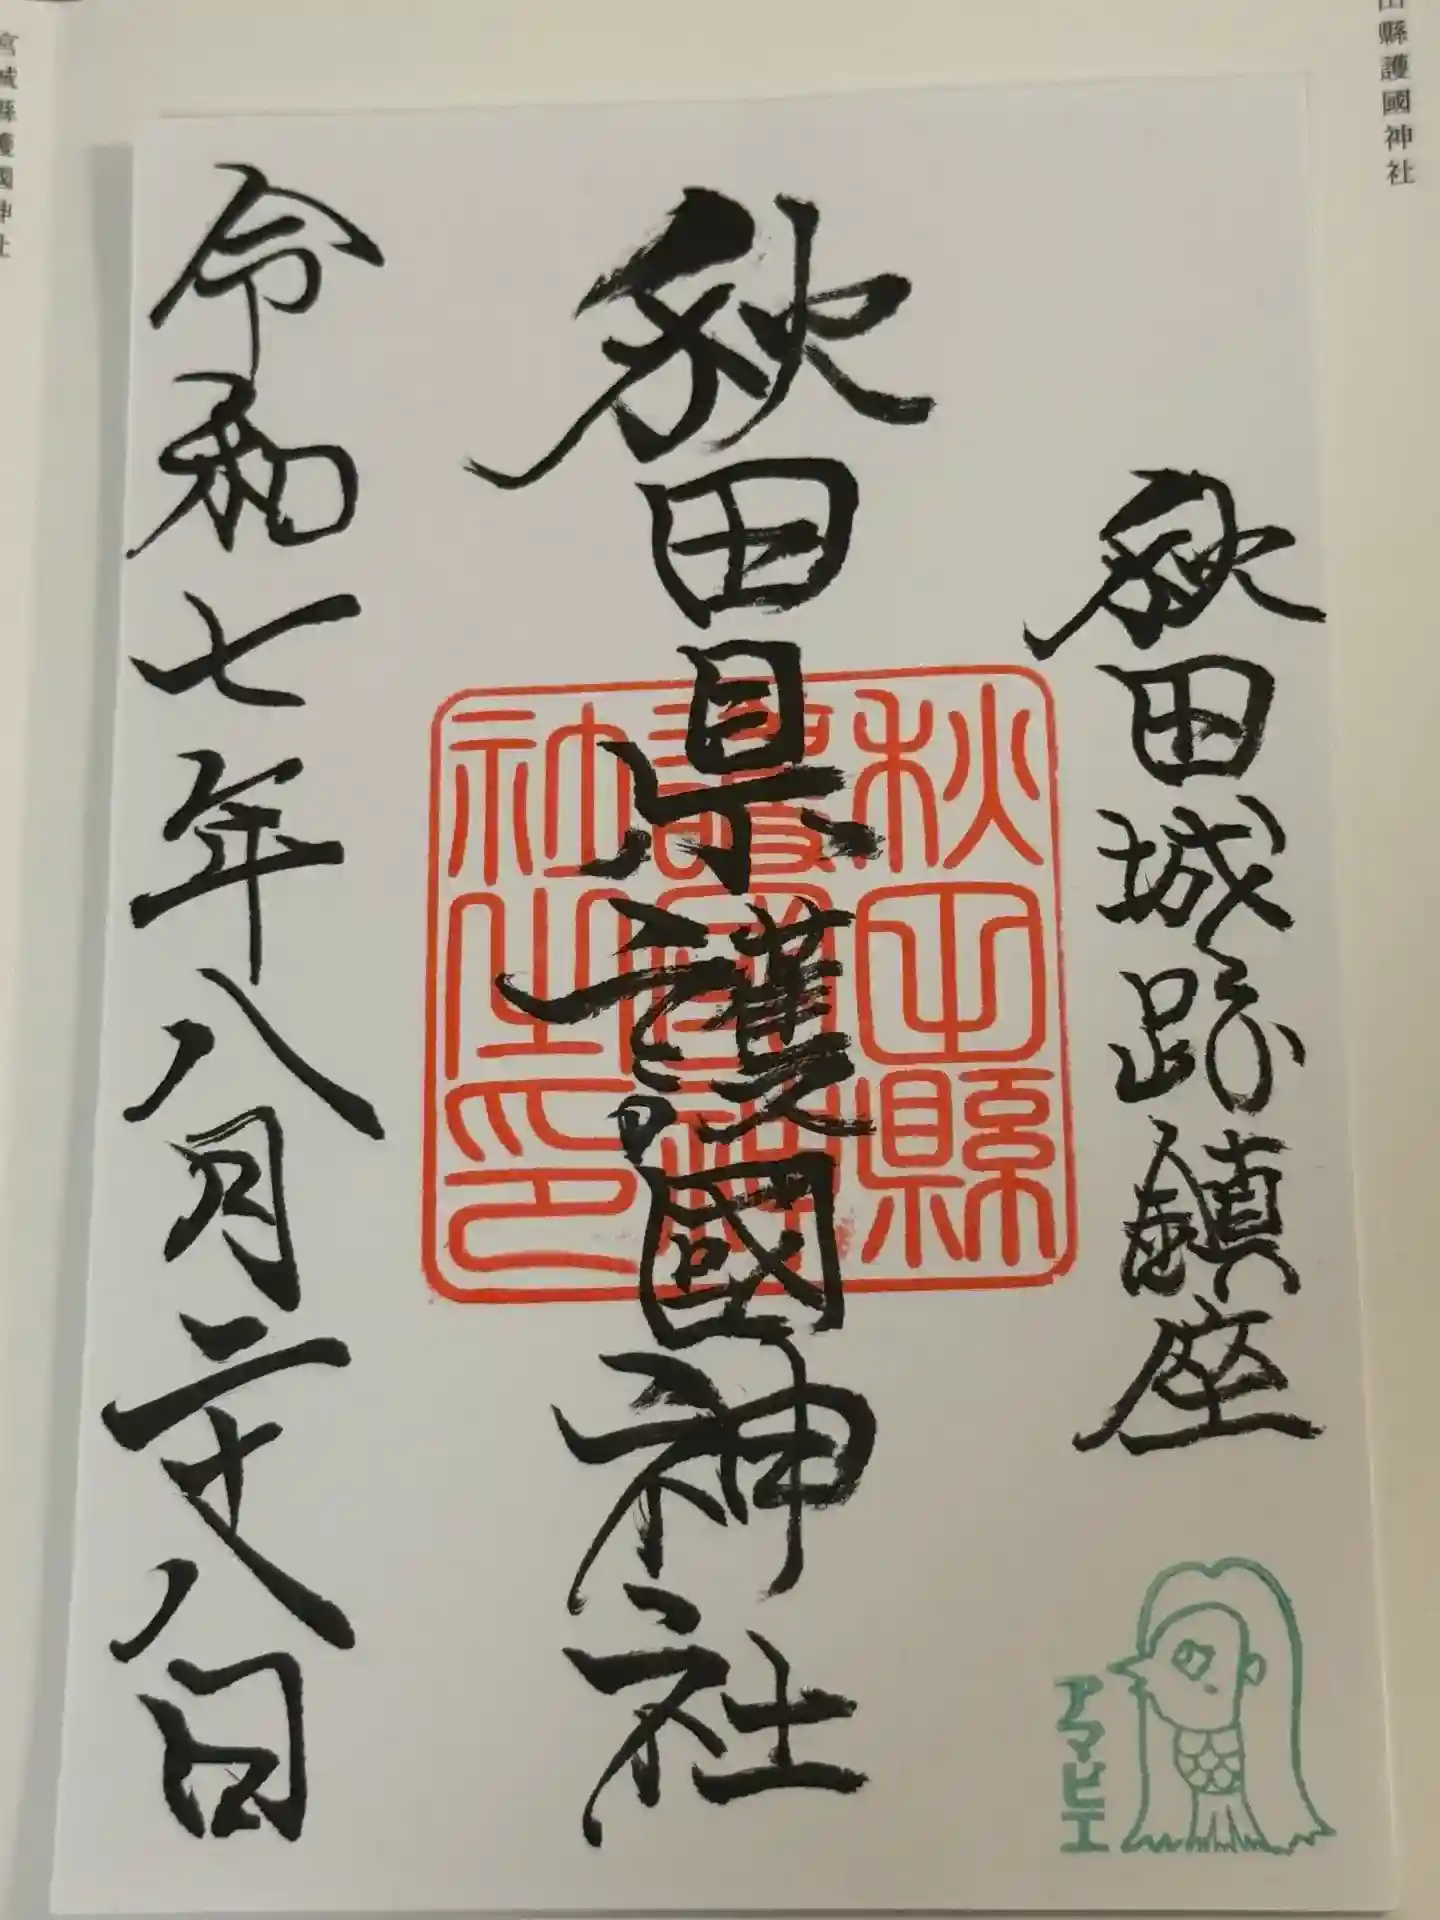 田縣護國神社
秋田城跡鎮座
秋田県護國神社
秋田縣
護國神
社之印
令和七年八月二十八日
アマビエ
宮城縣護國神社